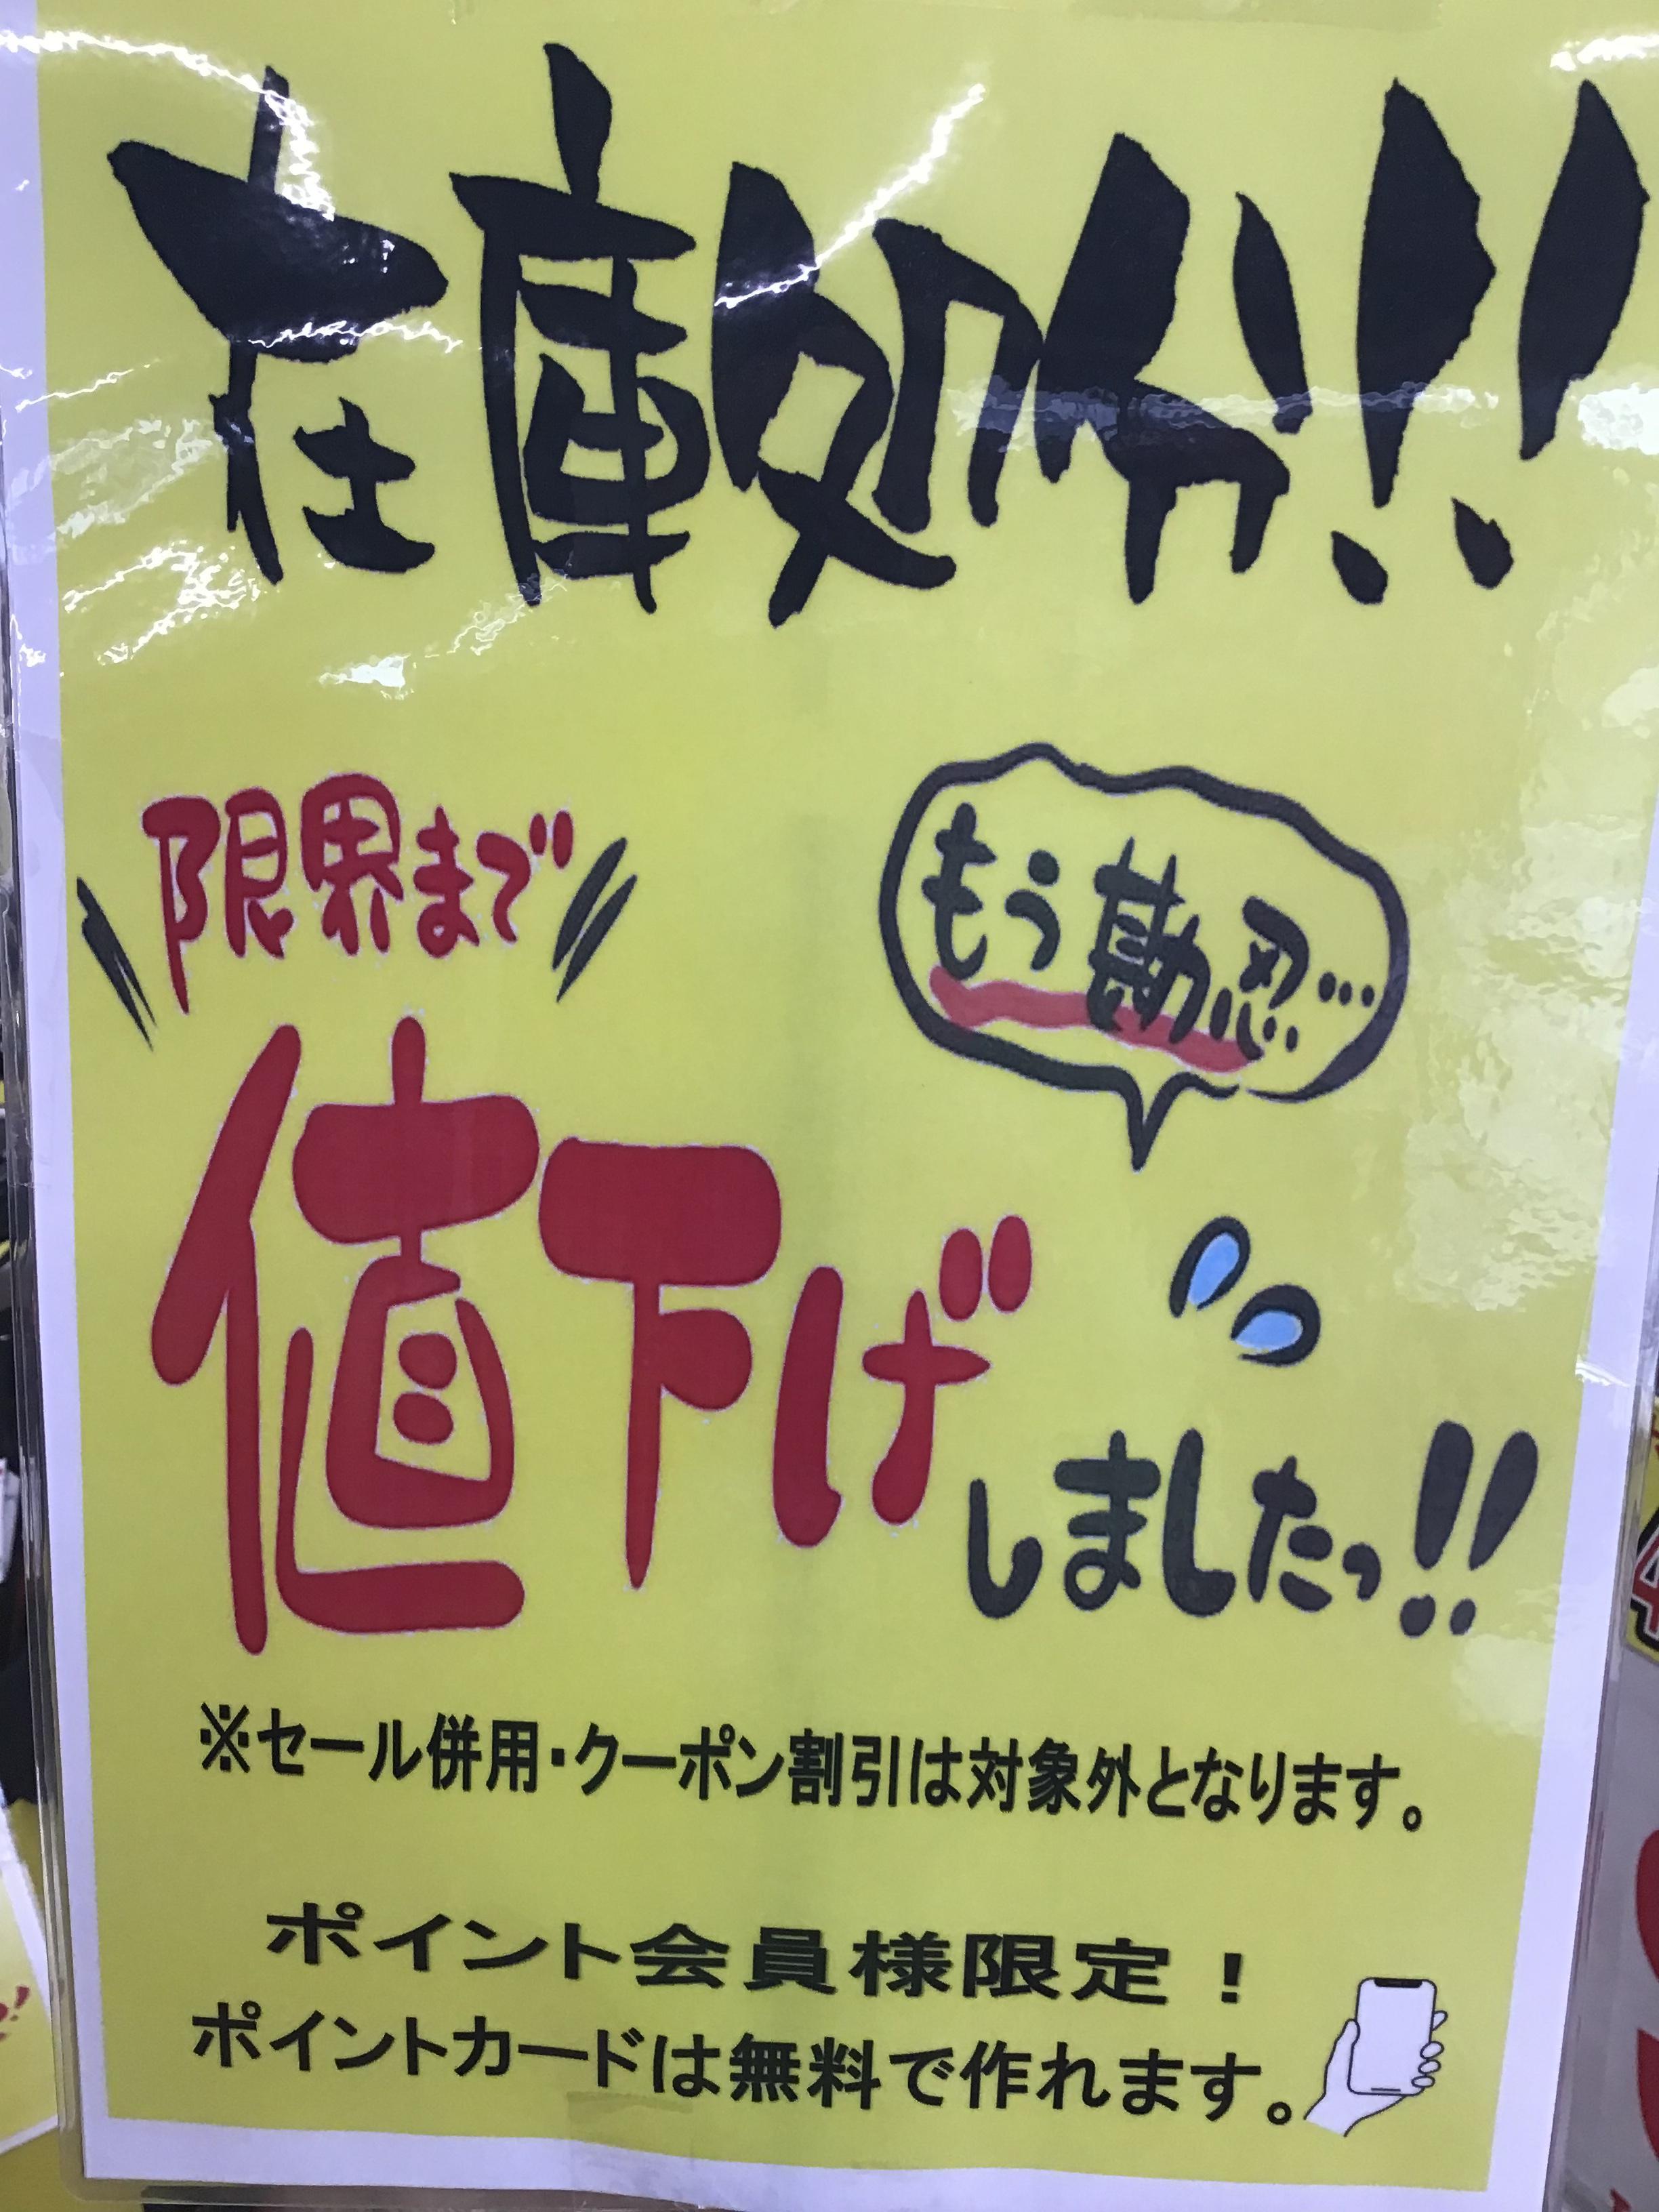 在庫処分!!
限界まで
もう勘忍…
値下げ
しましたっ!!
※セール併用・クーポン割引は対象外となります。
ポイント会員様限定！
ポイントカードは無料で作れます。